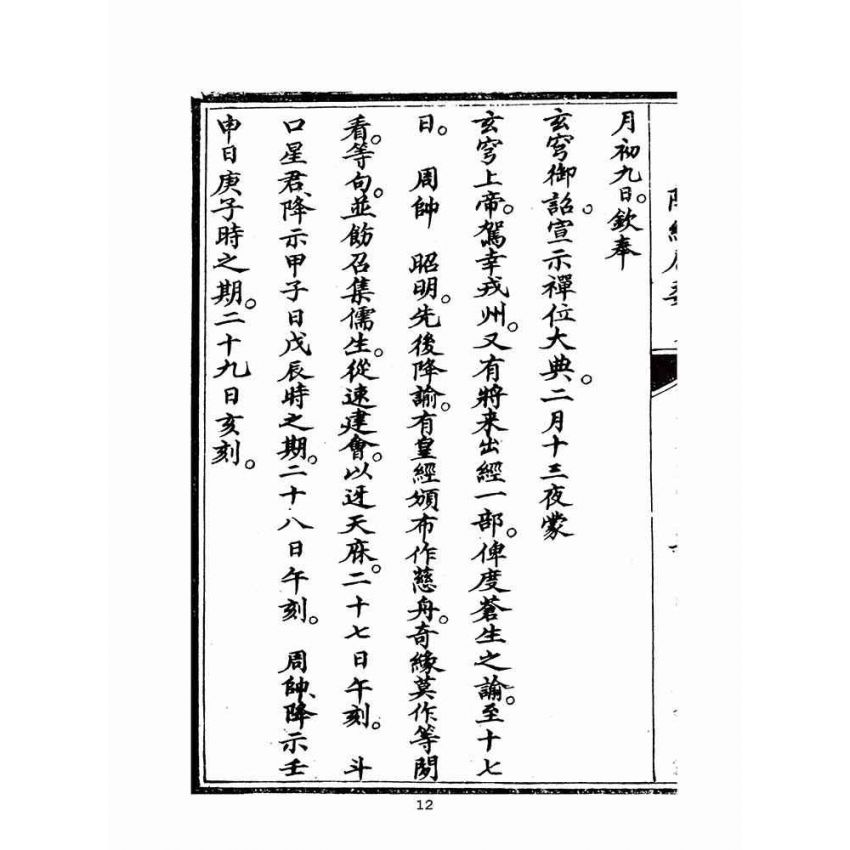 月初九日。欽奉
玄穹御詔。宣示禪位大典。二月十三夜蒙
玄穹上帝。駕幸戎州。又有將來出經一部。俾度蒼生之諭。至十七
日。　周帥　昭明。先後降諭。有皇經頒布作慈舟。奇緣莫作等閒
看。等句。並飭召集儒生。從速建會。以迓天庥。二十七日午刻。　斗
口星君、降示甲子日戊辰時之期。二十八日午刻。　周帥、降示壬
申日庚子時之期。二十九日亥刻。
12